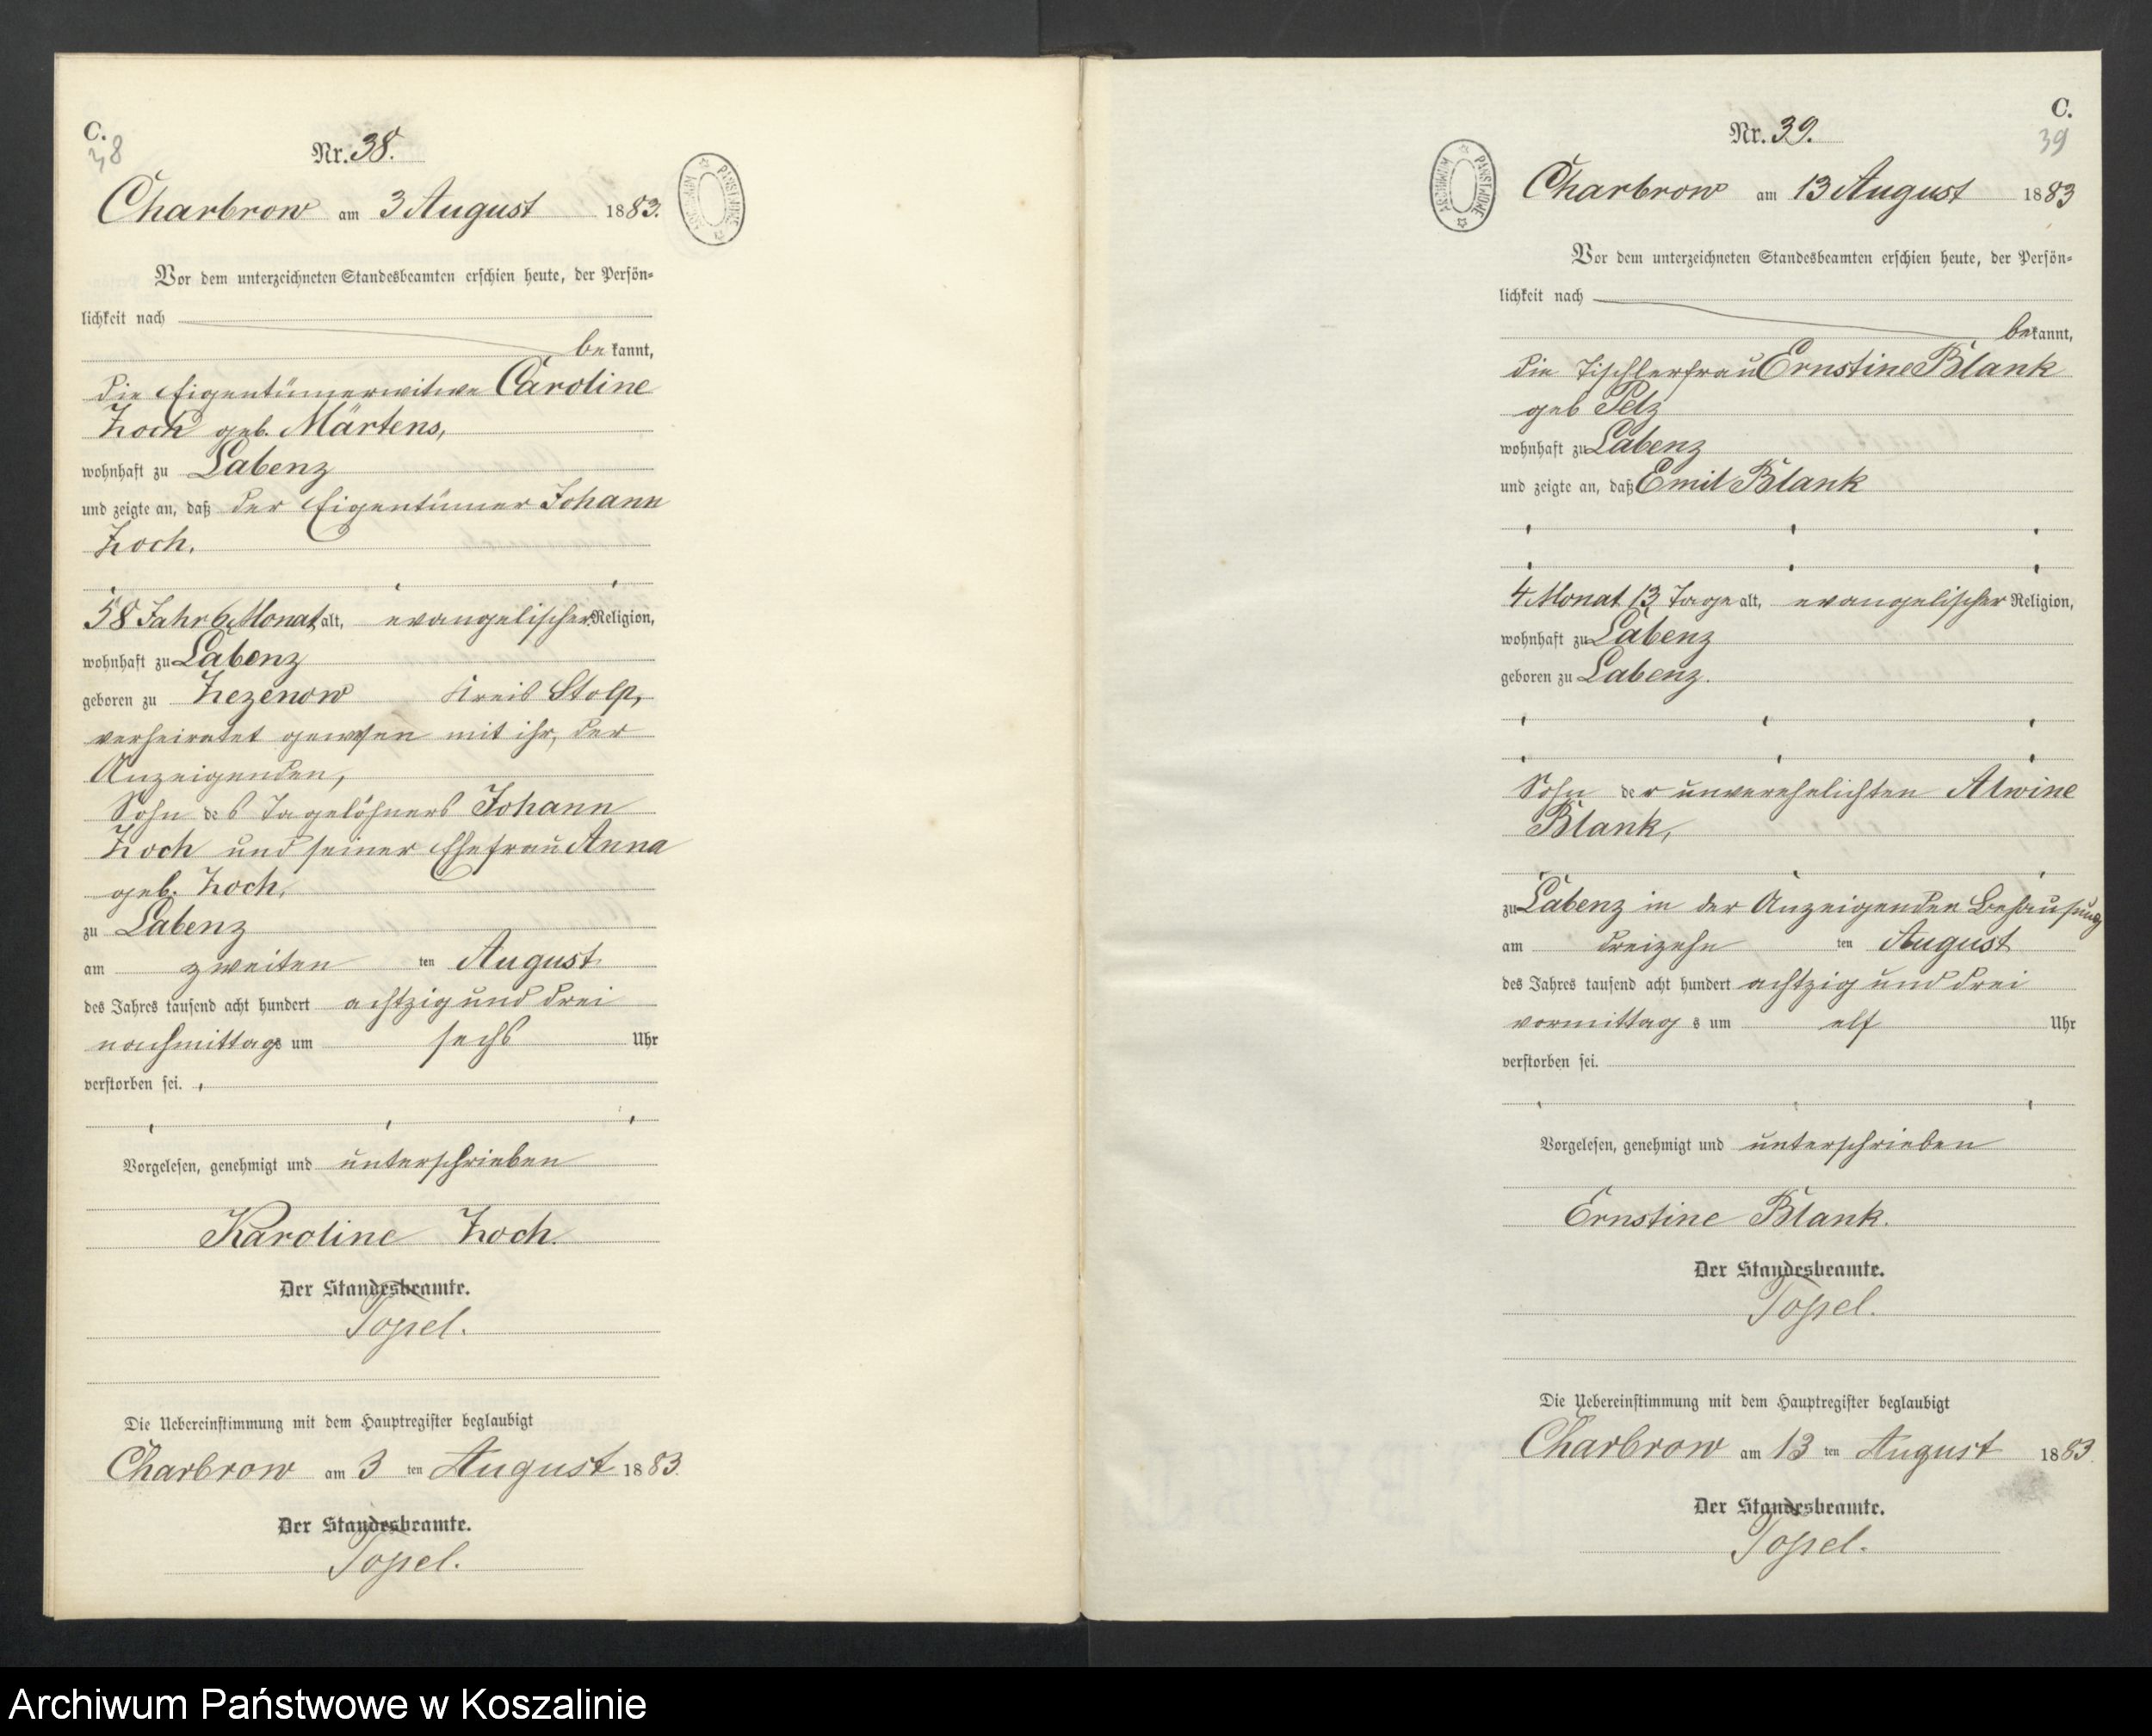 C.
38
Nr. 38.
Charbrow am 3 August 1883.
Vor dem unterzeichneten Standesbeamten erschien heute, der Persön-
lichkeit nach
bekannt,
die Eigentümerwitwe Caroline
Zoch geb. Märtens,
wohnhaft zu Labenz
und zeigte an, daß der Eigentümer Johann
Zoch.
58 Jahr 6 Monat alt, evangelischer Religion,
wohnhaft zu Labenz
geboren zu Zezenow Kreis Stolp,
verheiratet gewesen mit ihr, der
Anzeigenden,
Sohn des Tagelöhners Johann
Zoch und seiner Ehefrau Anna
geb. Zoch,
zu Labenz
am zweiten ten August
des Jahres tausend acht hundert achtzig und drei
nachmittags um sechs Uhr
verstorben sei.
Vorgelesen, genehmigt und unterschrieben
Karoline Zoch.
Der Standesbeamte.
Topel.
Die Uebereinstimmung mit dem Hauptregister beglaubigt
Charbrow am 3 ten August 1883.
Der Standesbeamte.
Topel.
ARCHIWUM PAŃSTWOWE
C.
39
Nr. 39.
Charbrow am 13 August 1883
Vor dem unterzeichneten Standesbeamten erschien heute, der Persön-
lichkeit nach
bekannt,
die Tischlerfrau Ernstine Blank
geb Pelz
wohnhaft zu Labenz
und zeigte an, daß Emil Blank
4 Monat 13 Tage alt, evangelischer Religion,
wohnhaft zu Labenz
geboren zu Labenz.
Sohn der unverehelichten Alwine
Blank,
zu Labenz in der Anzeigenden Behausung
am dreizehn ten August
des Jahres tausend acht hundert achtzig und drei
vormittags um elf Uhr
verstorben sei.
Vorgelesen, genehmigt und unterschrieben
Ernstine Blank.
Der Standesbeamte.
Topel.
Die Uebereinstimmung mit dem Hauptregister beglaubigt
Charbrow am 13 ten August 1883.
Der Standesbeamte.
Topel.
ARCHIWUM PAŃSTWOWE
Archiwum Państwowe w Koszalinie